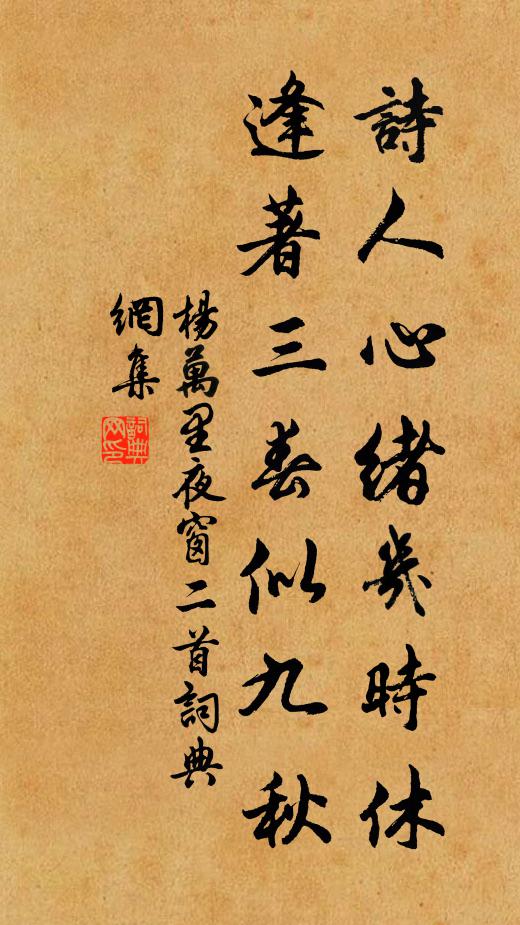 詩人心緒幾時休
逢著三春似九秋
楊萬里夜窗二首詞典
網集
詞典網印